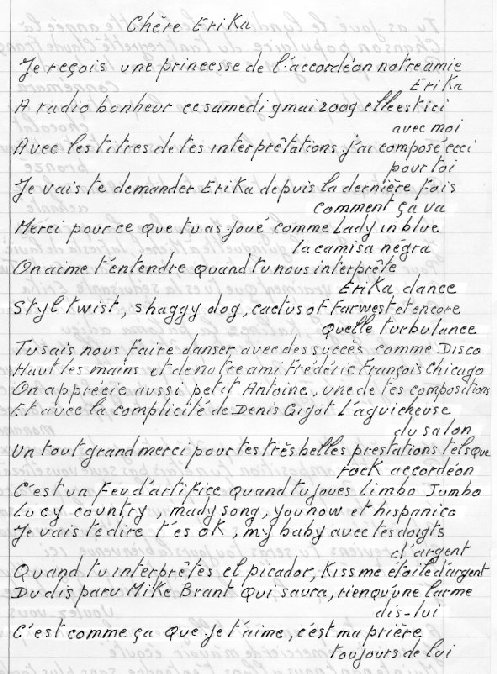 Chère Erika
Je reçois une princesse de l'accordéon notre amie
Erika
A radio bonheur ce samedi 9 mai 2009 elle est ici
avec moi
Avec les titres de tes interprêtations j'ai composé ceci
pour toi
Je vais te demander Erika depuis la dernière fois
comment ça va
Merci pour ce que tu as joué comme Lady in blue
la camisa négra
On aime t'entendre quand tu nous interprète
Erika dance
Styl twist, shaggy dog, cactus of farwest et encore
quelle turbulence
Tu sais nous faire danser avec des succès comme Disco
Haut les mains et de notre ami Frédéric François Chicago
On apprécie aussi petit Antoine, une de tes compositions
Et avec la complicité de Denis Gigot l'aguicheuse
du salon
Un tout grand merci pour tes très belles prestations tels que
rock accordéon
C'est un feu d'artifice quand tu joues limbo Jumbo
Lucy country, mady song, you now et hispanica
Je vais te dire t'es OK, my baby avec tes doigts
d'argent
Quand tu interprètes el picador, Kiss me étoile d'argent
Du disparu Mike Brant Qui saura, rien qu'une larme
dis-lui
C'est comme ça que je t'aime, c'est ma prière
toujours de lui